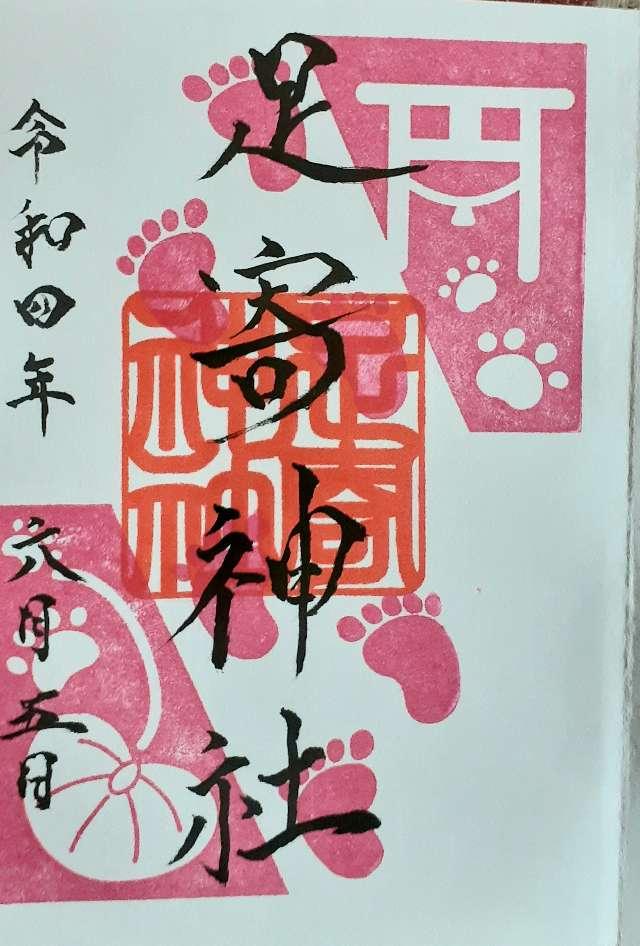 足寄神社
令和四年
六月五日